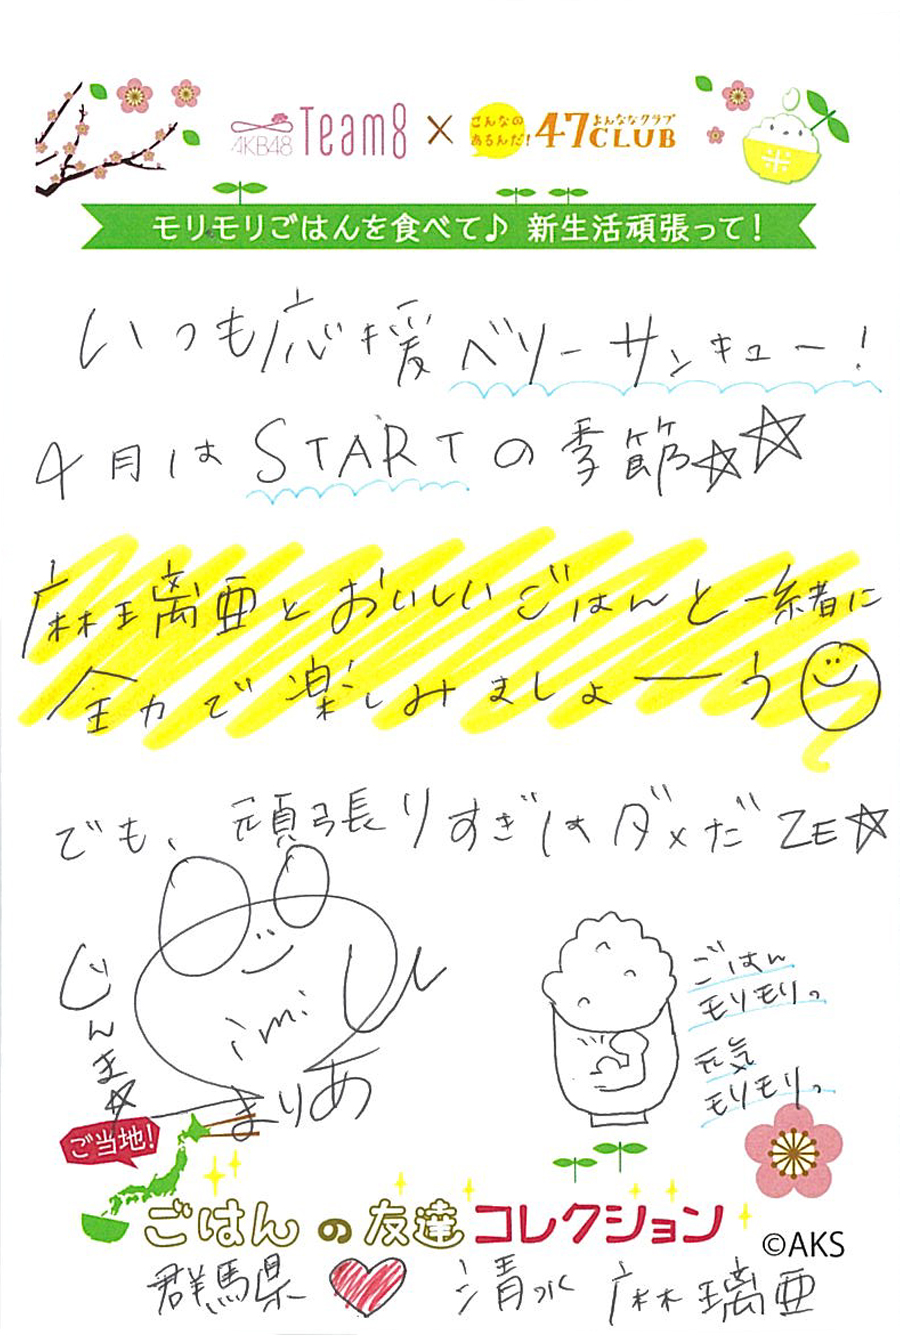 AKB48 Team8 × こんなの あるんだ! 47CLUB よんななクラブ
米
モリモリごはんを食べて♪ 新生活頑張って!
いつも応援ベリーサンキュー!
4月はSTARTの季節☆☆
麻璃亜とおいしいごはんと一緒に
全力で楽しみましょーう
でも、頑張りすぎはダメだZE☆
imi
まりあ
ごはん
モリモリっ
元気
モリモリっ
ご当地!
ごはんの友達コレクション
©AKS
群馬県♥ 清水 麻璃亜